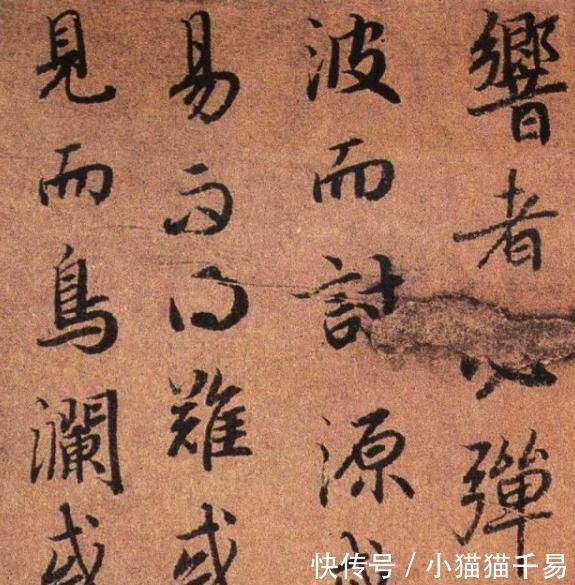 響者彈
波而討源
易而得難或
見而鳥瀾或
快传号 / 小猫猫千易